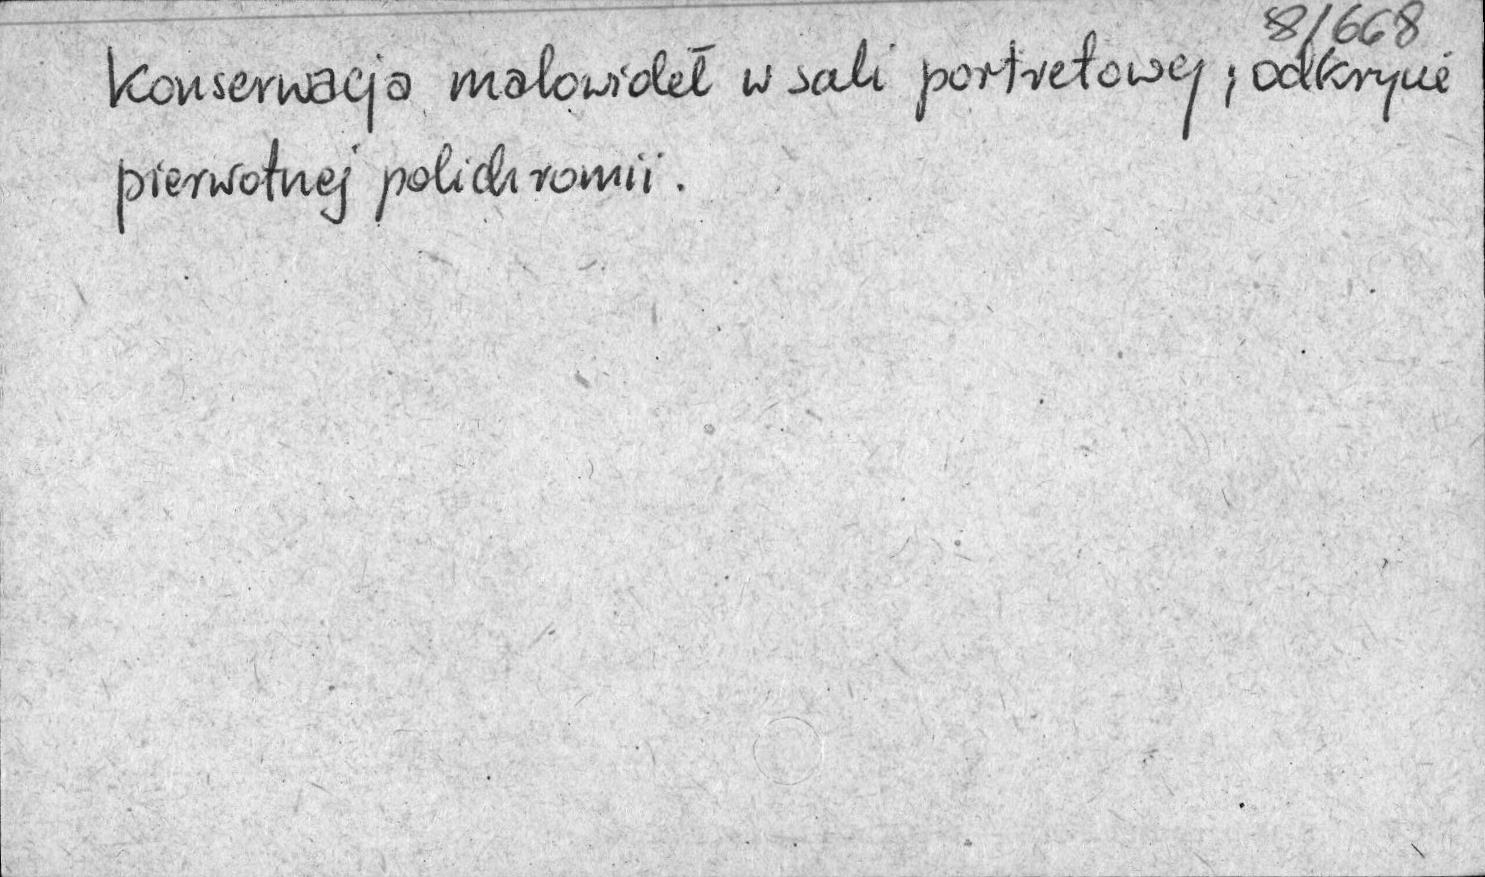 8/668
Konserwacja malowideł w sali portretowej; odkrycie
pierwotnej polichromii.